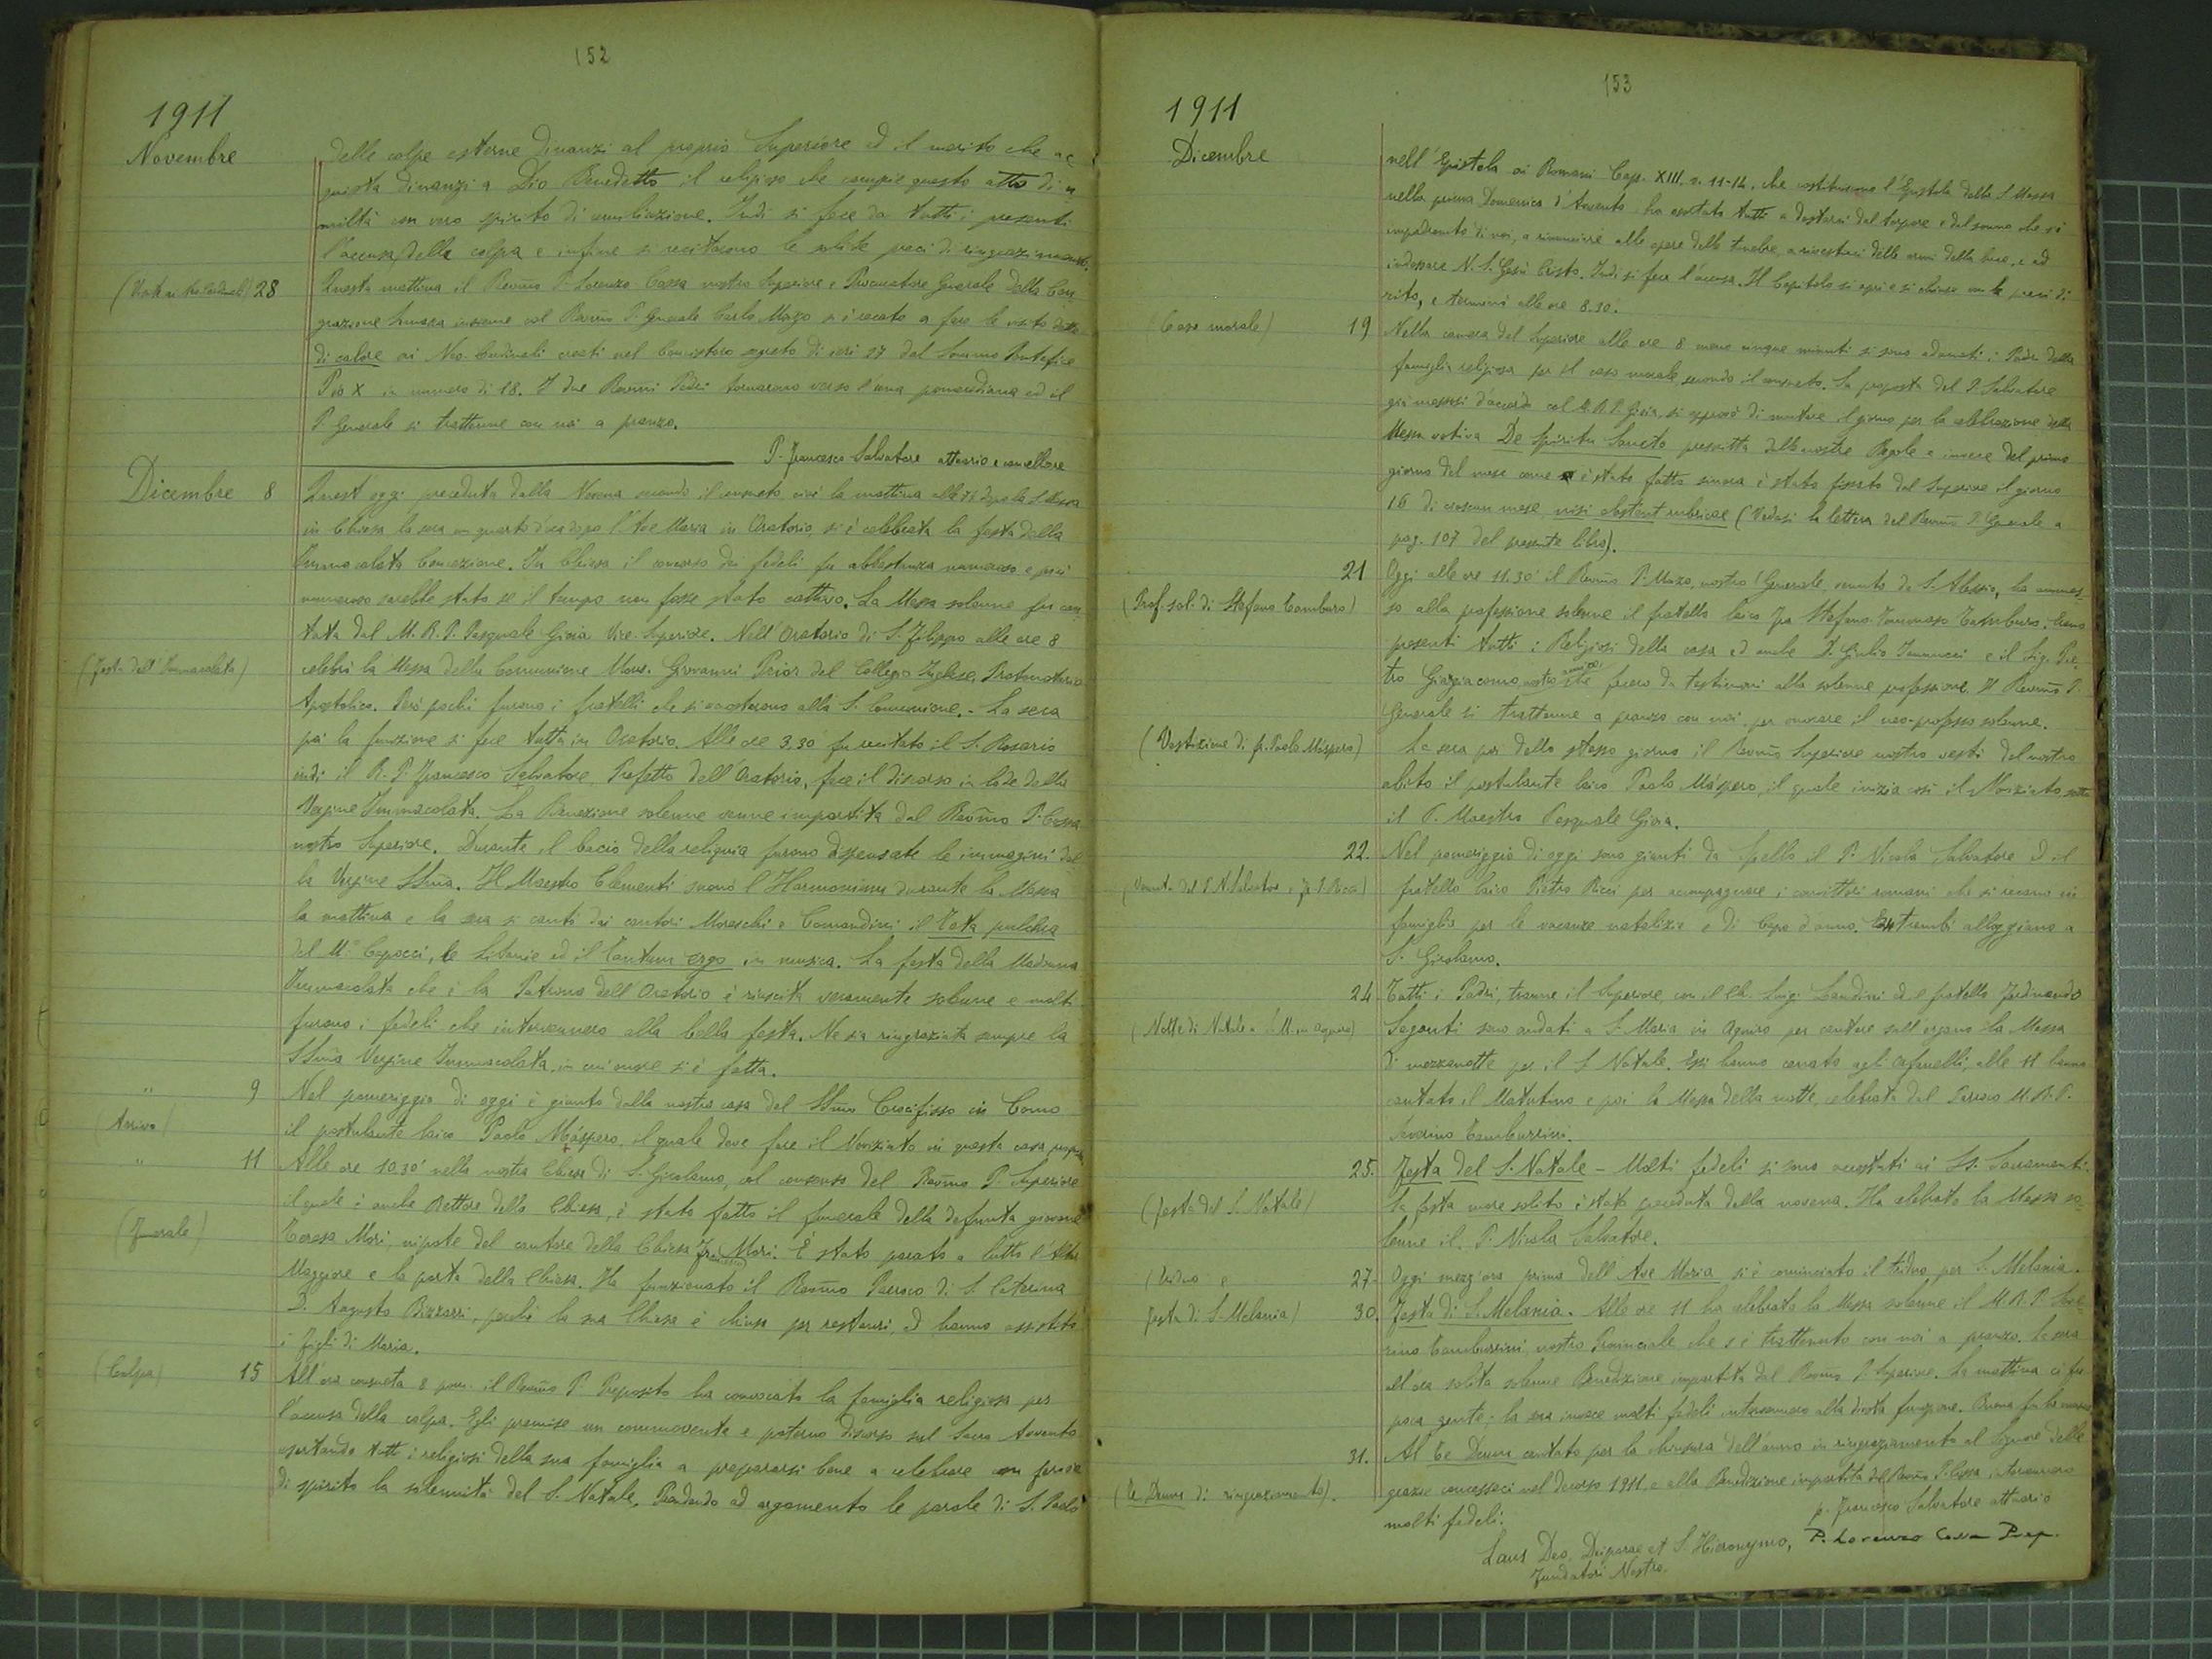 152
1911
Novembre
delle colpe esterne dinanzi al proprio Superiore ed il merito che ac
quista dinanzi a Dio Benedetto il religioso che compie questo atto di u
miltà con vero spirito di umiliazione. Indi si fece da tutti i presenti
l'accusa della colpa e infine si recitarono le solite preci di ringraziamento.
28 Questa mattina il Revmo P. Lorenzo Cossa nostro Superiore e Procuratore Generale della Con
gregazione Somasca insieme col Revmo P. Generale Carlo Moizo si è recato a fare le visite dette
di calore ai Neo-Cardinali creati nel Concistoro segreto di ieri 27 dal Sommo Pontefice
Pio X in numero di 18. I due Revmi Padri tornarono verso l'una pomeridiana ed il
P. Generale si trattenne con noi a pranzo.
P. Francesco Salvatore attuario e cancelliere
Dicembre 8 Quest'oggi preceduta dalla Novena secondo il consueto cioè la mattina alle dopo la S. Messa
in Chiesa la sera un quarto d'ora dopo l'Ave Maria in Oratorio, si è celebrata la festa della
Immacolata Concezione. In Chiesa il concorso dei fedeli fu abbastanza numeroso e più
numeroso sarebbe stato se il tempo non fosse stato cattivo. La Messa solenne fu can
tata dal M. R. P. Pasquale Gioia Vice-Superiore. Nell'Oratorio di S. Filippo alle ore 8
(Festa dell'Immacolata) celebrò la Messa della Comunione Mons. Giovanni Prior del Collegio Inglese, Protonotario
Apostolico. Però pochi furono i fratelli che si accostarono alla S. Comunione. - La sera
poi la funzione si fece tutta in Oratorio. Alle ore 3.30 fu recitato il S. Rosario
indi il R. P. Francesco Salvatore, Prefetto dell'Oratorio, fece il discorso in lode della
Vergine Immacolata. La Benezione solenne venne impartita dal Revmo P. Cossa
nostro Superiore. Durante il bacio della reliquia furono dispensate le immagini del
la Vergine SSma. Il Maestro Clementi suonò l'Harmonium durante la Messa
la mattina e la sera si cantò dai cantori Moreschi e Comandini il Tota pulchra
del M° Capocci, le Litanie ed il Tantum ergo in musica. La festa della Madonna
Immacolata che è la Patrona dell'Oratorio è riuscita veramente solenne e molti
furono i fedeli che intervennero alla bella festa. Ne sia ringraziata sempre la
SSma Vergine Immacolata, in cui onore si è fatta.
" 9 Nel pomeriggio di oggi è giunto dalla nostra casa del SSmo Crocifisso in Como
(Arrivo) il postulante laico Paolo Máspero, il quale deve fare il Noviziato in questa casa
" 11 Alle ore 10.30' nella nostra Chiesa di S. Girolamo, col consenso del Revmo P. Superiore
il quale è anche Rettore della Chiesa, è stato fatto il funerale della defunta giovane
(Funerale) Teresa Mori, nipote del cantore della Chiesa Mori. È stato parato a lutto l'Altar
Maggiore e la porta della Chiesa. Ha funzionato il Revmo Parroco di S. Caterina
D. Augusto Bizzarri, perché la sua Chiesa è chiusa per restauri, ed hanno assistito
i Figli di Maria.
(Colpa) 15 All'ora consueta 8 pom. il Revmo P. Preposito ha convocato la famiglia religiosa per
l'accusa della colpa. Egli premise un commovente e paterno discorso sul Sacro Avvento
esortando tutti i religiosi della sua famiglia a prepararsi bene a celebrare con fervore
di spirito la solennità del S. Natale, Prendendo ad argomento le parole di S. Paolo
153
1911
Dicembre
nell'Epistola ai Romani Cap. XIII. v. 11-14. che costituiscono l'Epistola della S. Messa
nella prima Domenica d'Avvento ha esortato tutti a destarsi dal torpore e dal sonno che si è
impadronito di noi, a rinunciare alle opere delle tenebre, a rivestirsi delle armi della luce, e ad
indossare N. S. Gesù Cristo. Indi si fece l'accusa. Il Capitolo si aprì e si chiuse con le preci di
rito, e terminò alle ore 8.30'.
(Caso morale) 19 Nella camera del Superiore alle ore 8 meno cinque minuti si sono adunati i Padri della
famiglia religiosa per il caso morale secondo il consueto. La proposta del P. Salvatore
già messosi d'accordo col M. R. P. Gioia, si approvò di mutare il giorno per la celebrazione della
Messa votiva De Spiritu Sancto prescritta dalle nostre Regole e invece del primo
giorno del mese come è stato fatto sinora è stato fissato dal Superiore il giorno
16 di ciascun mese, nisi obstent rubricae (Vedasi la lettera del Revmo P. Generale a
pag. 107 del presente libro).
21 Oggi alle ore 11.30' il Revmo P. Moizo, nostro Generale, venuto da S. Alessio, ha ammes
(Prof. sol. di Stefano Tamburo) so alla professione solenne il fratello laico fra Stefano Tommaso Tamburo. Erano
presenti tutti i Religiosi della casa ed anche D. Giulio Iannucci e il Sig. Pie
tro Giorgiacomo nostro amico, che fecero da testimoni alla solenne professione. Il Revmo P.
Generale si trattenne a pranzo con noi per onorare il neo-professo solenne.
(Vestizione di fr. Paolo Máspero) La sera poi dello stesso giorno il Revmo Superiore nostro vestì del nostro
abito il postulante laico Paolo Máspero, il quale inizia così il Noviziato sotto
il P. Maestro Pasquale Gioia.
22. Nel pomeriggio di oggi sono giunti da Spello il P. Nicola Salvatore ed il
(Venuta del P. N. Salvatore e fr. P. Ricci) fratello laico Pietro Ricci per accompagnare i convittori romani che si recano in
famiglia per le vacanze natalizie e di Capo d'anno. Entrambi alloggiano a
S. Girolamo.
24 Tutti i Padri, tranne il Superiore, con il Ch. Luigi Landini ed il fratello Ferdinando
(Notte di Natale a S. M. in Aquiro) Seganti sono andati a S. Maria in Aquiro per cantare sull'organo la Messa
di mezzanotte per il S. Natale. Essi hanno cenato agli Orfanelli, alle 11 hanno
cantato il Matutino e poi la Messa della notte, celebrata dal Parroco M. R. P.
Severino Tamburrini.
25. Festa del S. Natale - Molti fedeli si sono accostati ai SS. Sacramenti.
(Festa del S. Natale) La festa more solito è stata preceduta dalla novena. Ha celebrato la Messa so
lenne il P. Nicola Salvatore.
(Triduo e 27. Oggi mezz'ora prima dell'Ave Maria si è cominciato il triduo per S. Melania.
festa di S. Melania) 30. Festa di S. Melania. Alle ore 11 ha celebrato la Messa solenne il M. R. P. Seve
rino Tamburrini, nostro Provinciale che s'è trattenuto con noi a pranzo. La sera
all'ora solita solenne Benedizione impartita dal Revmo P. Superiore. La mattina ci fu
poca gente; la sera invece molti fedeli intervennero alla divota funzione. Buona fu la musica
31. Al Te Deum cantato per la chiusura dell'anno in ringraziamento al Signore delle
(Te Deum di ringraziamento). grazie concesseci nel decorso 1911, e alla Benedizione impartita dal Revmo P. Cossa, intervennero
molti fedeli.
p. Francesco Salvatore attuario
Laus Deo, Deiparae et S. Hieronymo, P. Lorenzo Cossa Prep.
Fundatori Nostro.